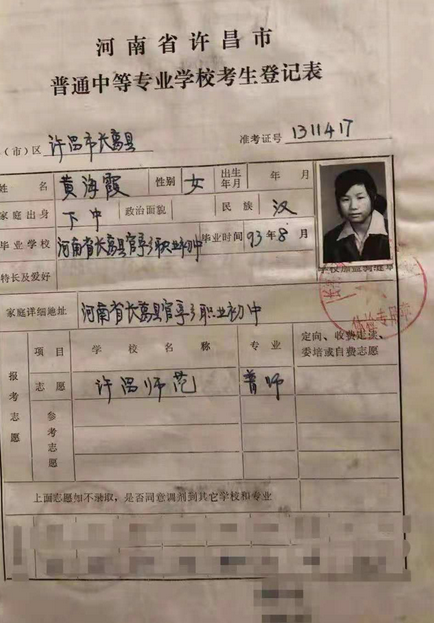 河南省许昌市
普通中等专业学校考生登记表
（市）区 许昌市长葛县 准考证号 1311417
姓名 黄海霞 性别 女 出生年月 年 月
家庭出身 下中 政治面貌 民族 汉
毕业学校 河南省长葛县官亭乡职业初中 毕业时间 93年8月
特长及爱好
家庭详细地址 河南省长葛县官亭乡职业初中
报考志愿 项目 学校名称 专业 定向、收费走读、委培或自费志愿
志愿 许昌师范 普师
参考志愿
上面志愿如不录取，是否同意调剂到其它学校和专业